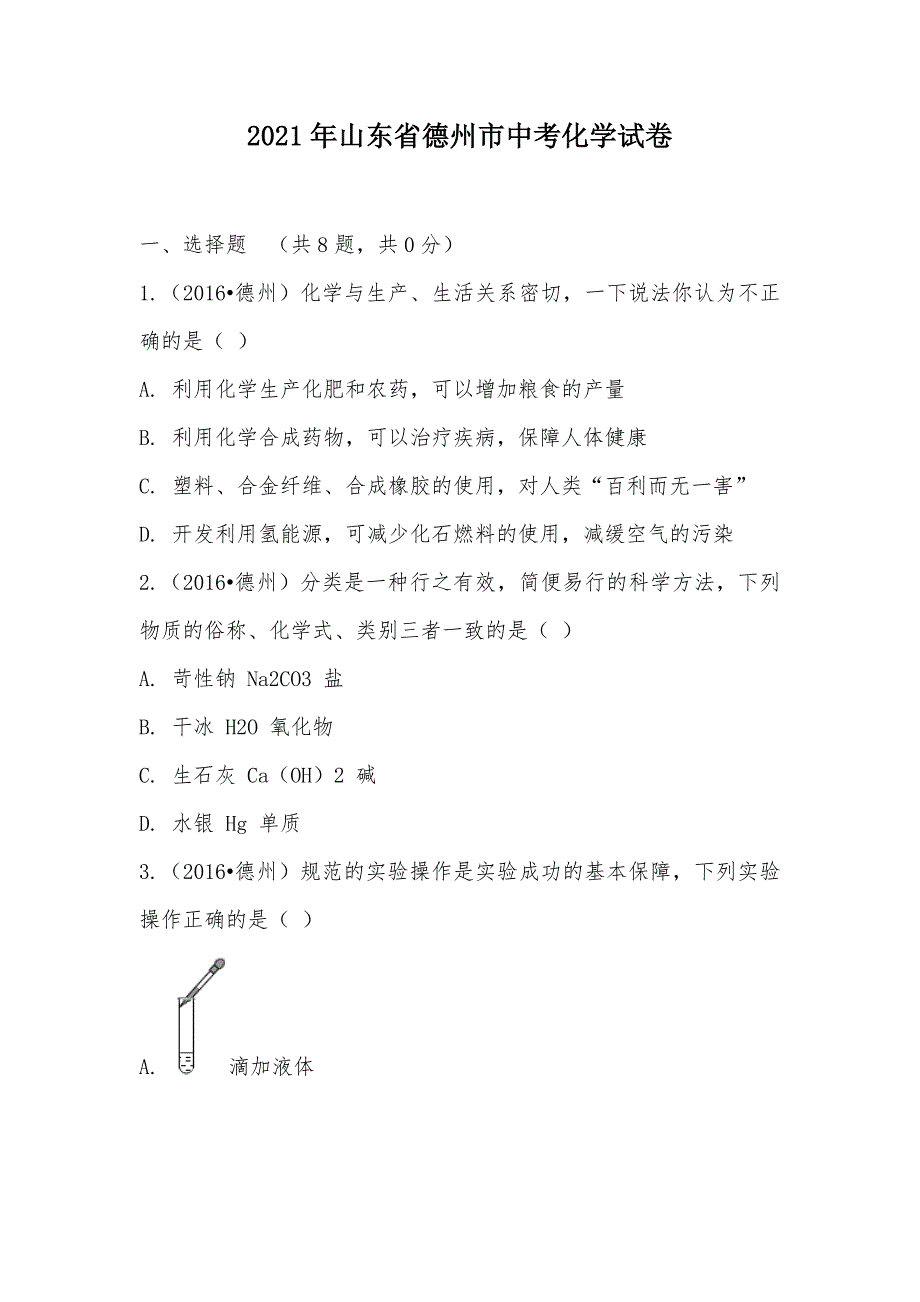 2021年山东省德州市中考化学试卷
一、选择题　（共8题，共0分）
1.（2016•德州）化学与生产、生活关系密切，一下说法你认为不正
确的是（ ）
A. 利用化学生产化肥和农药，可以增加粮食的产量
B. 利用化学合成药物，可以治疗疾病，保障人体健康
C. 塑料、合金纤维、合成橡胶的使用，对人类“百利而无一害”
D. 开发利用氢能源，可减少化石燃料的使用，减缓空气的污染
2.（2016•德州）分类是一种行之有效，简便易行的科学方法，下列
物质的俗称、化学式、类别三者一致的是（ ）
A. 苛性钠 Na2CO3 盐
B. 干冰 H2O 氧化物
C. 生石灰 Ca（OH）2 碱
D. 水银 Hg 单质
3.（2016•德州）规范的实验操作是实验成功的基本保障，下列实验
操作正确的是（ ）
A. 滴加液体